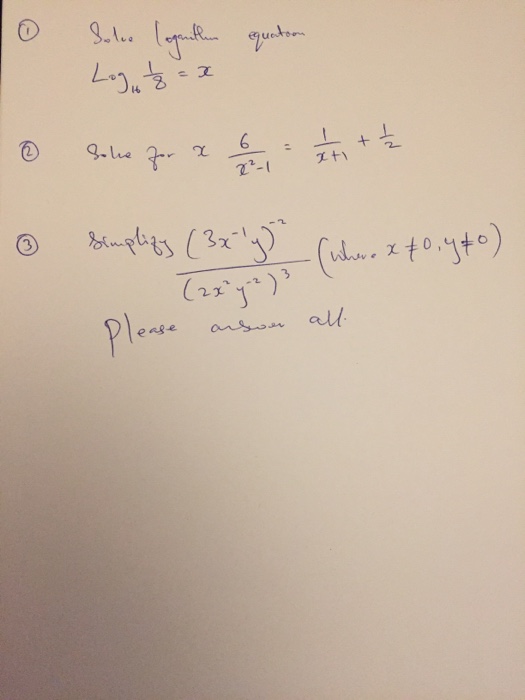 ① Solve logarithm equation
Log₁₆ 1/8 = x
② Solve for x 6/(x²-1) = 1/(x+1) + 1/2
③ Simplify (3x⁻¹y)⁻² / (2x²y⁻²)³ (where x ≠ 0, y ≠ 0)
Please answer all.